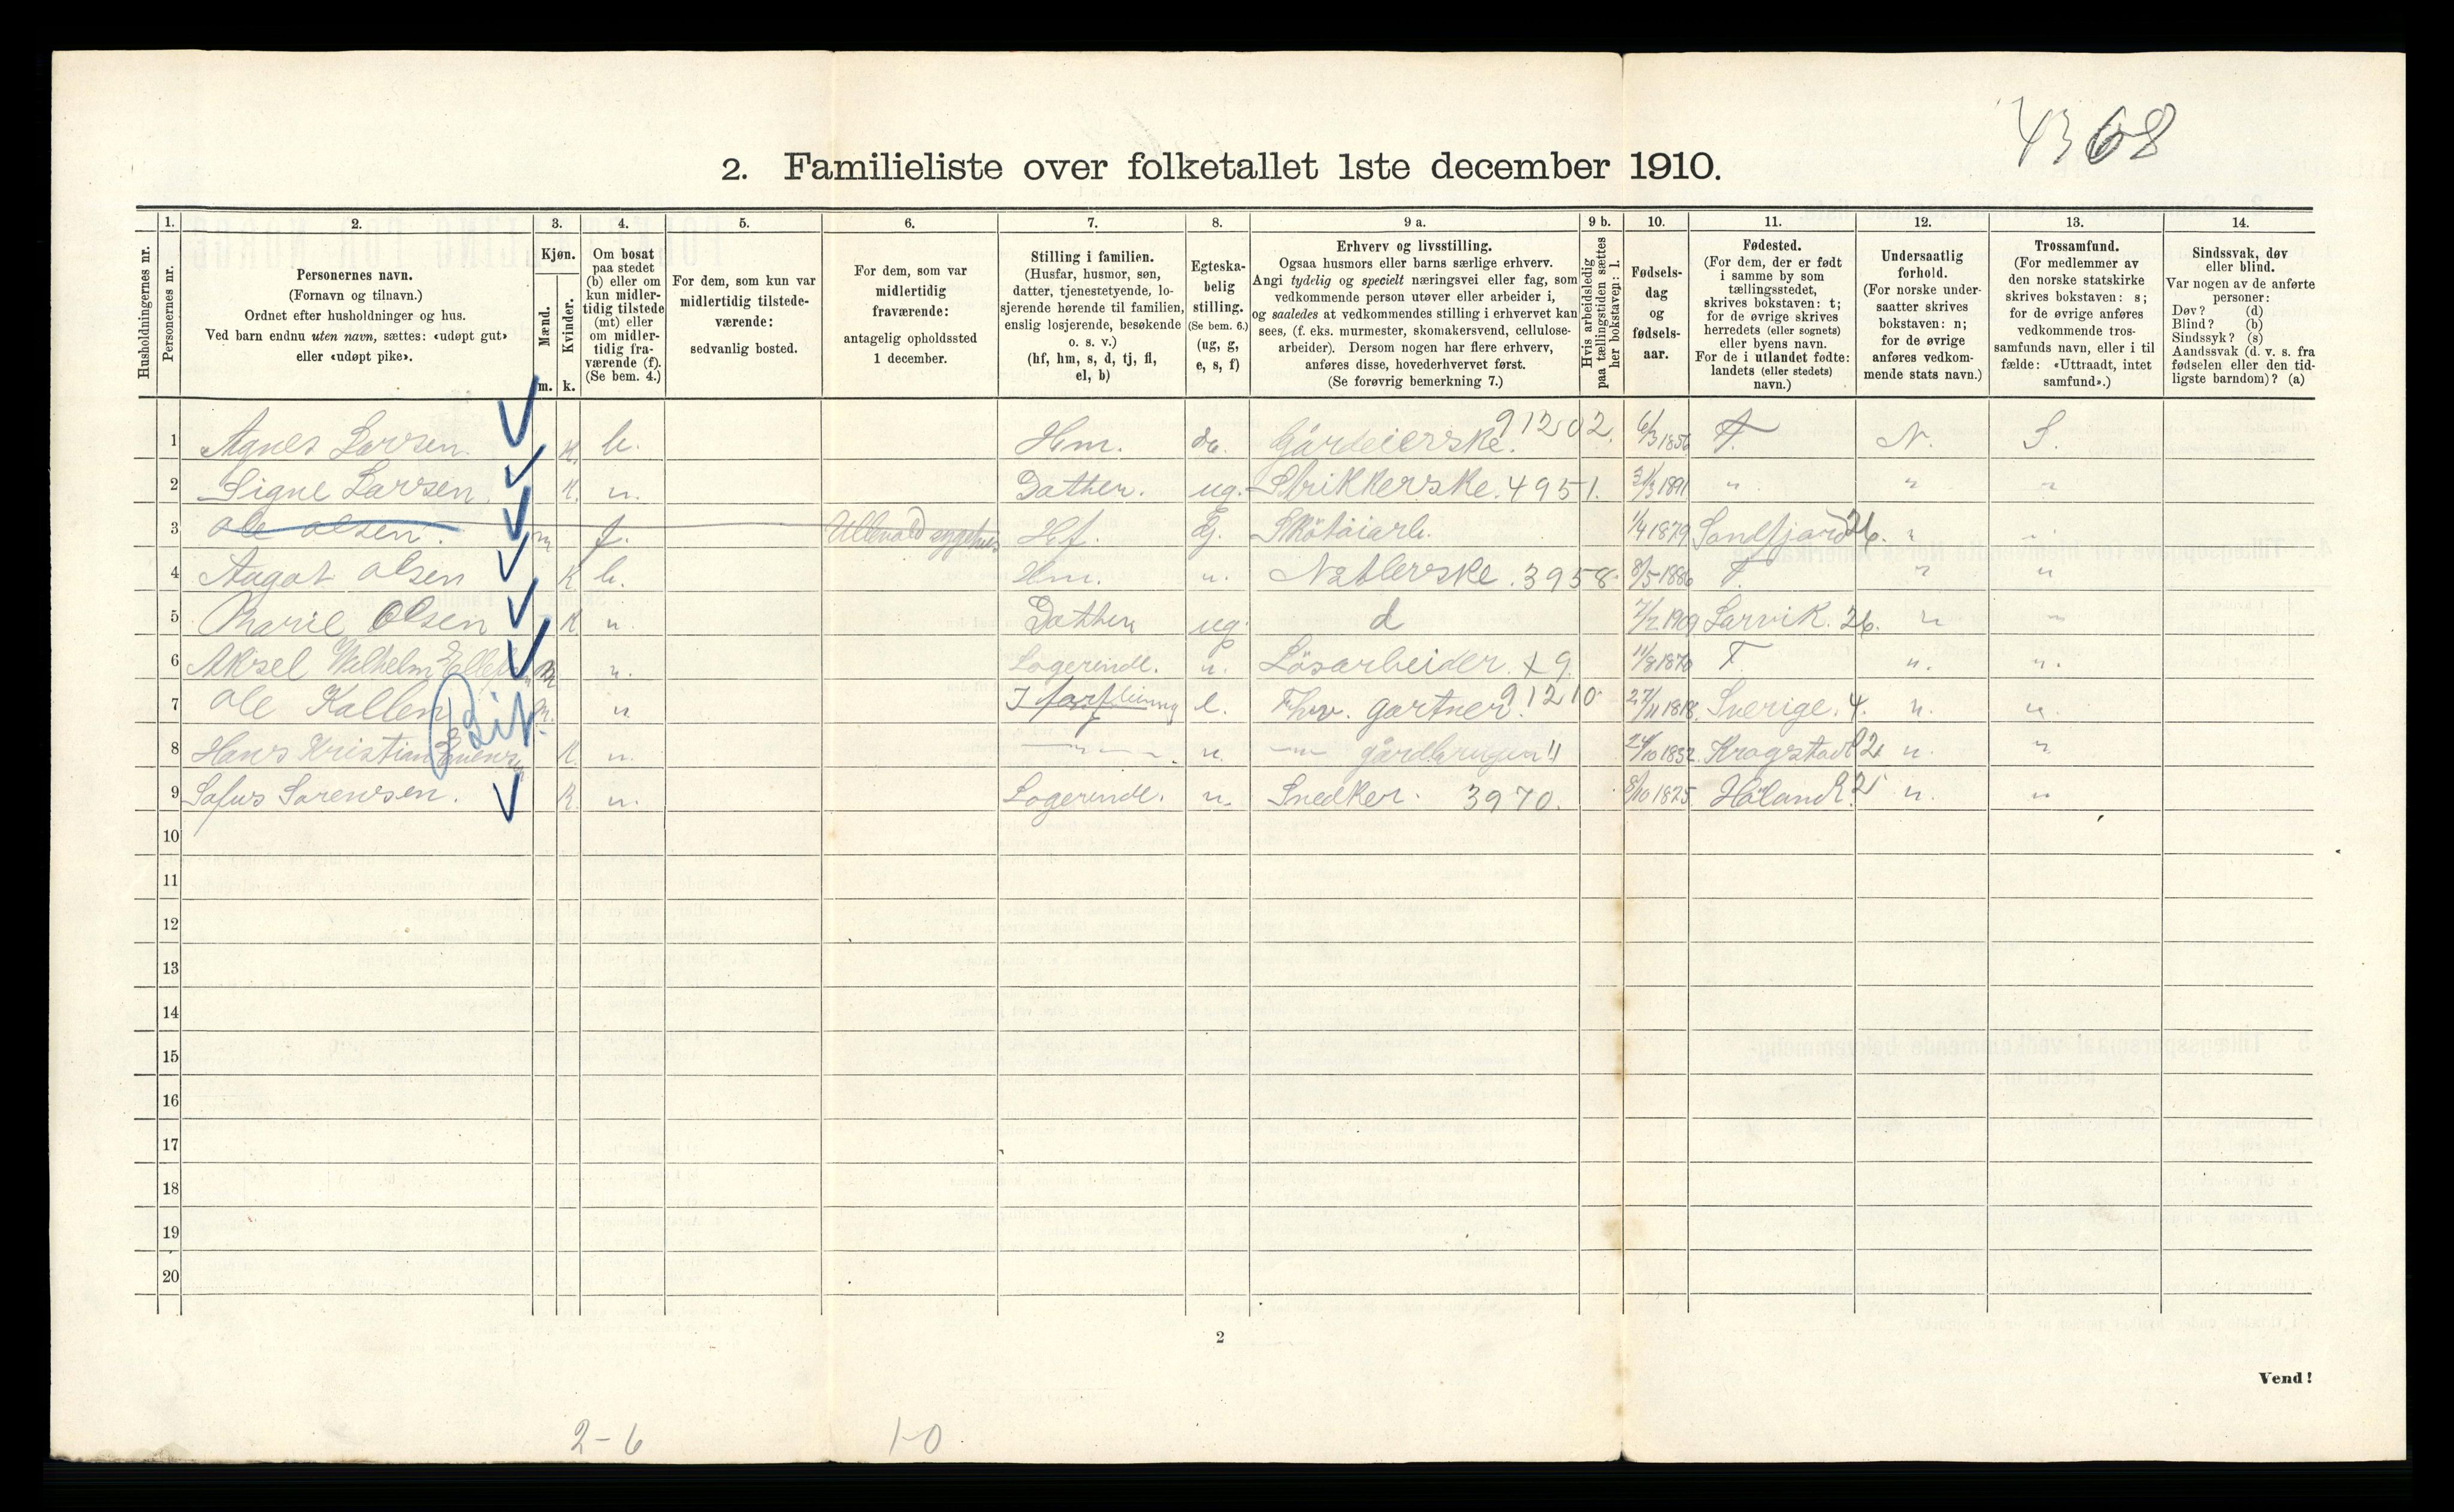 4368
2. Familieliste over folketallet 1ste december 1910.
Husholdningernes nr.
1. Personernes nr.
2. Personernes navn.
(Fornavn og tilnavn.)
Ordnet efter husholdninger og hus.
Ved barn endnu uten navn, sættes: «udøpt gut»
eller «udøpt pike».
3. Kjøn.
Mænd. m.
Kvinder. k.
4. Om bosat
paa stedet
(b) eller om
kun midler-
tidig tilstede
(mt) eller
om midler-
tidig fra-
værende (f).
(Se bem. 4.)
5. For dem, som kun var
midlertidig tilstede-
værende:
sedvanlig bosted.
6. For dem, som var
midlertidig
fraværende:
antagelig opholdssted
1 december.
7. Stilling i familien.
(Husfar, husmor, søn,
datter, tjenestetyende, lo-
sjerende hørende til familien,
enslig losjerende, besøkende
o. s. v.)
(hf, hm, s, d, tj, fl,
el, b)
8. Egteska-
belig
stilling.
(Se bem. 6.)
(ug, g,
e, s, f)
9 a. Erhverv og livsstilling.
Ogsaa husmors eller barns særlige erhverv.
Angi tydelig og specielt næringsvei eller fag, som
vedkommende person utøver eller arbeider i,
og saaledes at vedkommendes stilling i erhvervet kan
sees, (f. eks. murmester, skomakersvend, cellulose-
arbeider). Dersom nogen har flere erhverv,
anføres disse, hovederhvervet først.
(Se forøvrig bemerkning 7.)
9 b. Hvis arbeidsledig
paa tællingstiden sættes
her bokstaven: l.
10. Fødsels-
dag
og
fødsels-
aar.
11. Fødested.
(For dem, der er født
i samme by som
tællingsstedet,
skrives bokstaven: t;
for de øvrige skrives
herredets (eller sognets)
eller byens navn.
For de i utlandet fødte:
landets (eller stedets)
navn.)
12. Undersaatlig
forhold.
(For norske under-
saatter skrives
bokstaven: n;
for de øvrige
anføres vedkom-
mende stats navn.)
13. Trossamfund.
(For medlemmer av
den norske statskirke
skrives bokstaven: s;
for de øvrige anføres
vedkommende tros-
samfunds navn, eller i til
fælde: «Uttraadt, intet
samfund».)
14. Sindssvak, døv
eller blind.
Var nogen av de anførte
personer:
Døv? (d)
Blind? (b)
Sindssyk? (s)
Aandssvak (d. v. s. fra
fødselen eller den tid-
ligste barndom)? (a)
1 Agnes Larsen K. b. Hm. Gårdeierske. 91202. 6/3 1856 T. N. S.
2 Signe Larsen K. " Datter. ug. Strikkerske. 4951. 1891 " " "
3 Ole Olsen. m f. Hf. g. Skötöiarb. 1/4 1879 26. " "
4 Aagot Olsen K b. Hm. " 3958. 8/5 T. " "
5 Marie Olsen K " Datter ug. d 1909 Larvik. 26. " "
6 Aksel Wilhelm Ellefsen m " Logerende. " Lösarbeider. x 9. 11/8 1870 T " "
7 Ole Kallen m. " I forpleining e. Fhv. gartner. 91210 27/11 1818. Sverige. 4. " "
8 Hans Kristian K. " " " 24/10 1832. Krogstad 2 " "
9 Sofus Sorensen. K. " Logerende. " Snedker. 3970. 8/10 1825. Höland 2 " "
10
11
12
13
14
15
16
17
18
19
20
2
Vend!
2-6 1-0